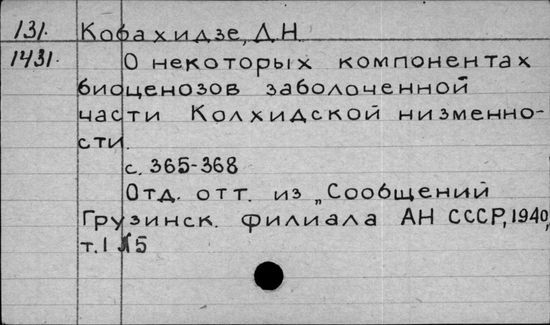 131. Кобахидзе, Д.Н.
1431. О некоторых компонентах
биоценозов заболоченной
части Колхидской низменно-
сти.
с. 365-368
Отд. отт. из „Сообщений
Грузинск. филиала АН СССР, 1940,
т.1 №5